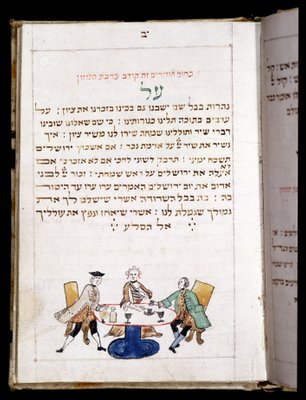 יב
בחול אומרים זה קודם ברכת המזון
על
נהרות בבל שם ישבנו גם בכינו בזכרנו את ציון : על
ערבים בתוכה תלינו כנורותינו : כי שם שאלונו שובינו
דברי שיר ותוללינו שמחה שירו לנו משיר ציון : איך
נשיר את שיר על אדמת נכר : אם אשכחך ירושלים
תשכח ימיני : תדבק לשוני לחכי אם לא אזכרכי אם
אעלה את ירושלים על ראש שמחתי : זכור לבני
אדום את יום ירושלים האומרים ערו ערו עד היסוד
בה : בת בבל השדודה אשרי שישלם לך את
גמולך שגמלת לנו : אשרי שיאחז ונפץ את עולליך
אל הסלע :